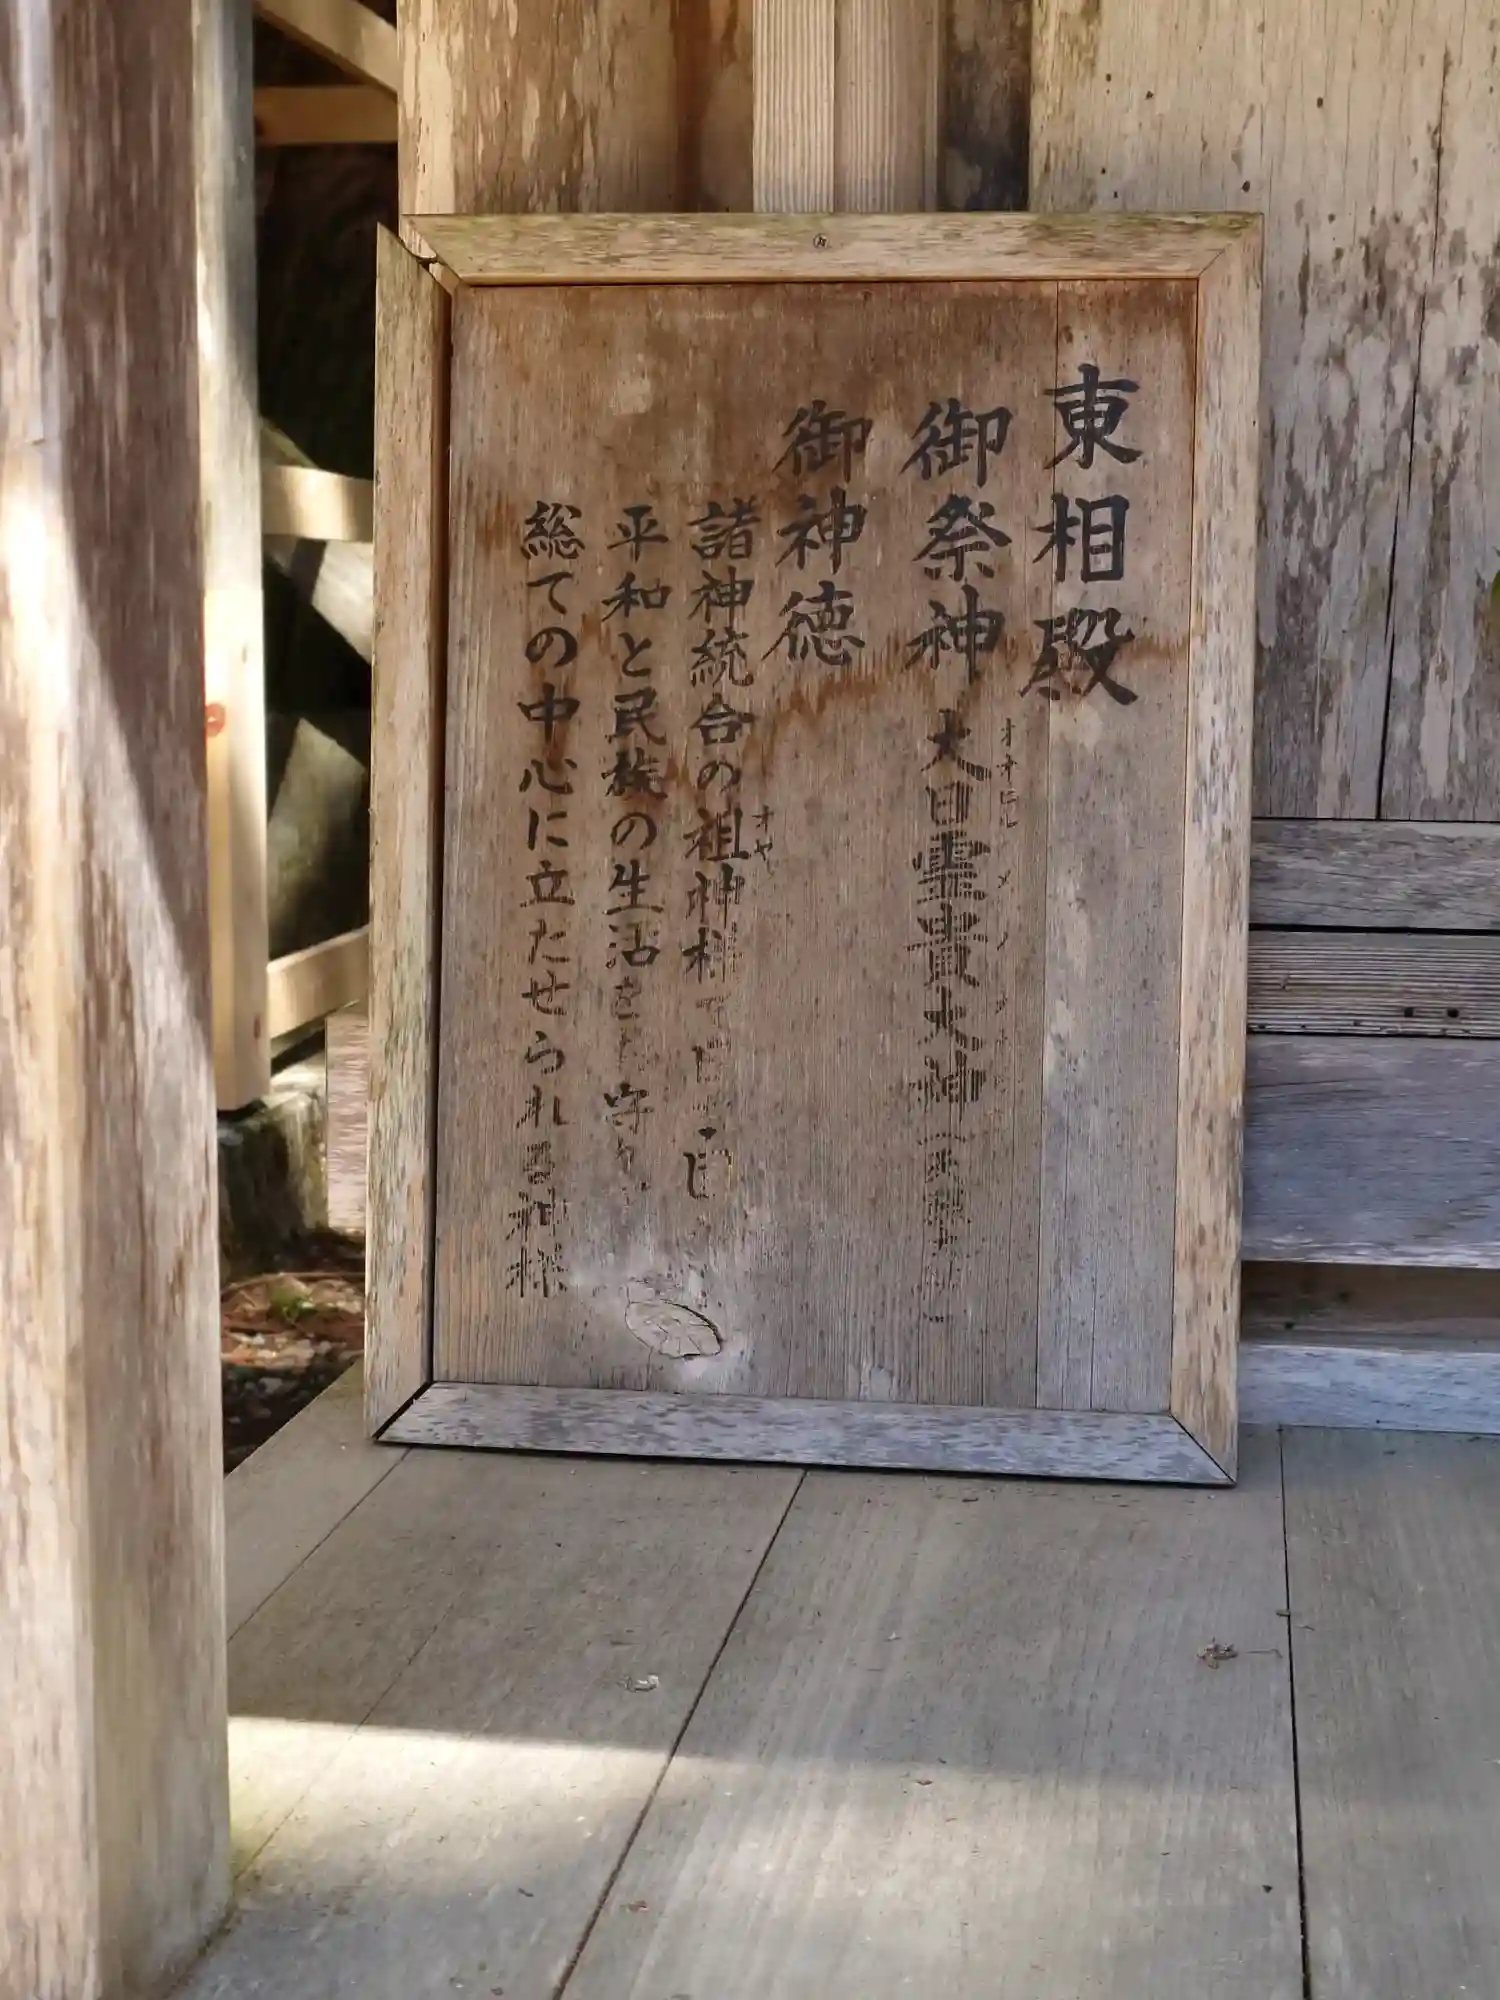 東相殿
御祭神 大日霊貴大神
オオヒルメノ
御神徳
諸神統合の祖神様で日
オヤ
平和と民族の生活をお守り
総ての中心に立たせられる神様